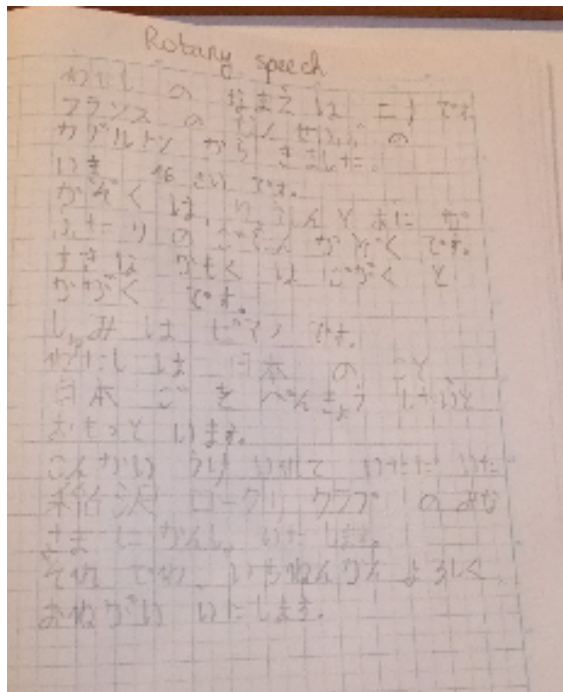 Rotary speech
わたし の なまえ は です
フランス の なんせいぶ の
から きました。
いま 16 さい です。
かぞく は、りょうしん と あに が
ふたり の ごにん かぞく です。
すきな かもく は ごがく と
かがく です。
しゅみ は ピアノ です。
わたし は 日本 の こと
日本 ご を べんきょう したいと
おもって います。
こんかい うけ いれて いただ いた
ロータリ クラブ の みな
さま に かんしゃ いたします。
それ では、いちねんかん よろしく
おねがい いたします。